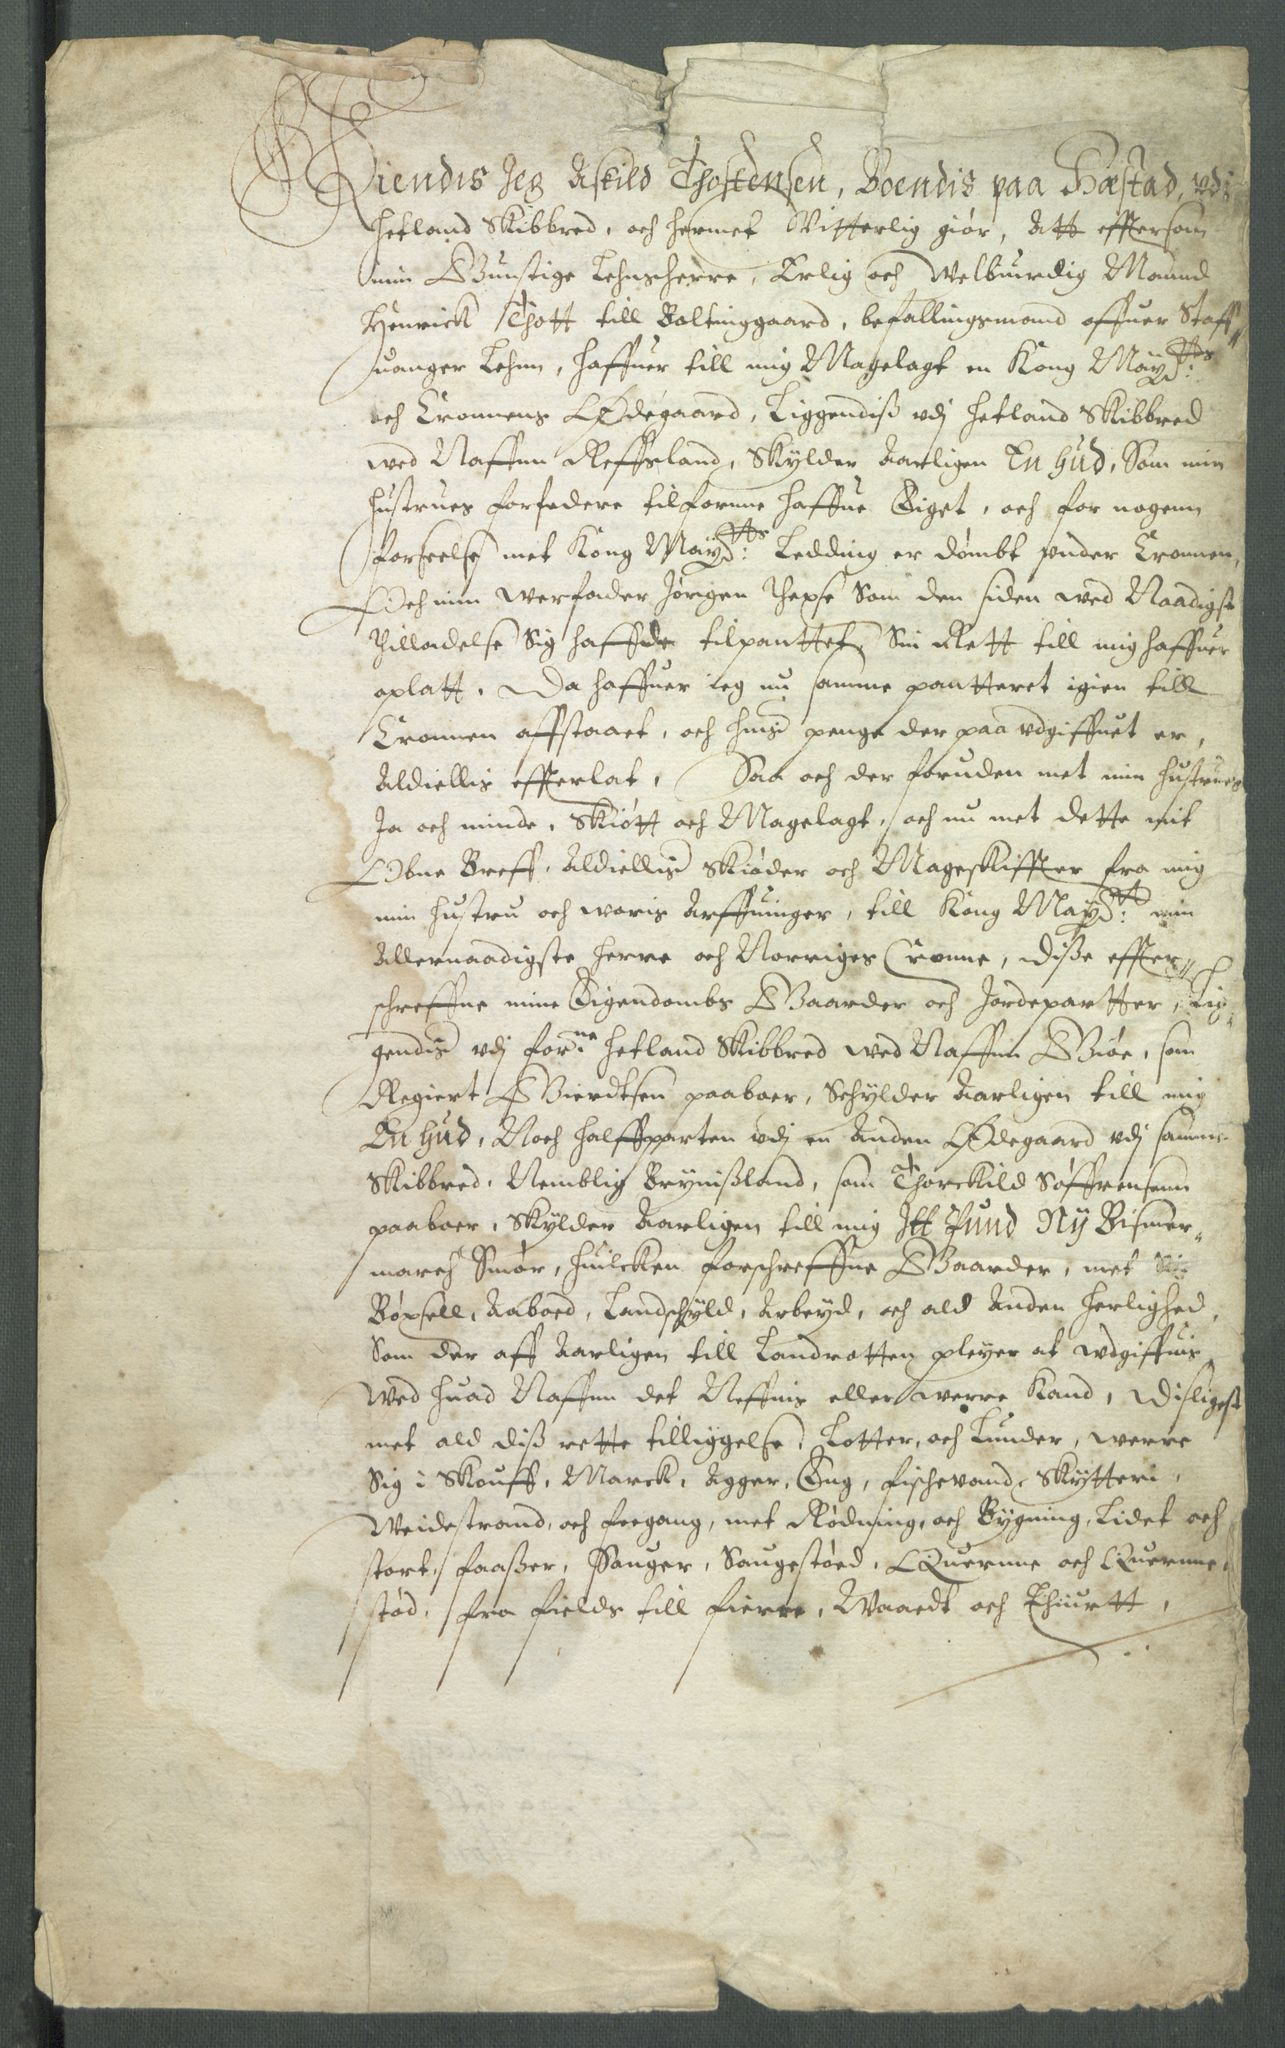 Kiendis Jeg Askild Thostensen, Boendis paa Hæstad, udi
Hetland Skibbred, och hermet Vitterlig giør, Att efftersom
min Gunstige Lehnsherre, Erlig och Welbuurdig Maand
Henrick Thott till Boltinggaard, befallingsmand offuer Staff„
uanger Lehnn, haffuer till mig Magelagt en Kong Maÿtts:
och Cronnens Ødegaard, Liggendiß vdj Hetland Skibbred
wed Naffnn Reffsland, Skÿlder Aarligen En hud, Som min
hustrues forfædere tilfornne haffue Eiget, och for nogenn
forseelse met Kong Maÿtts: Ledding er dømbt vnder Cronnen,
Och min Werfader Jørigen Thexse Som den siden wed Naadigst
Thilladelse Sig haffde tilpanttet, Sin Rett till mig haffuer
oplatt. Da haffuer ieg nu samme pantteret igien till
Cronnen affstaaet, och hins penge der paa vdgiffuet er,
Aldiellis efftterlat, Saa och der foruden met min hustrues
Ja och minde, Skiøtt och Magelagt, och nu met dette mit
Obne Breff, Aldiellis Skiøder och Mageskiffter fra mig
min hustru och woris Arffuinger, till Kong Maÿtt: min
Allernaadigste Herre och Norriges Cronne, diße effter„
schreffne mine Eigendombs Gaarder och Jordepartter, Lig„
gendis vdj forne Hetland Skibbred wed Naffnn Giøe, som
Regiert Gierdtsen paaboer, Schÿlder Aarligen till mig
En hud, Noch halffparten vdj en Anden Ødegaard vdj samme
Skibbred, Nemblig Brÿnißland, som Thorckild Søffrensenn
paaboer, Skÿlder Aarligen till mig Itt Pund Nÿ Bismer„
march Smør, huilcken forschreffne Gaarder, met
Bøxsell, Aaboed, Landschÿld, Arbeÿd, och ald Anden herlighed,
Som der aff Aarligen till Landrotten pleÿer at wdgiffuis
Wed huad Naffnn det Neffnis eller werre kand, Disligest
met ald diß rette tilliggelse, Lotter, och Lunder, werre
Sig i Skouff, Marck, Agger, Eng, fischevand, Skÿtteri,
Weidestrand, och feegang, met Rødning, och Bÿgning, Lidet och
stort, faaßer, Sauger, Saugestøed, Querne och Querne„
stød, fra fields till fierre, Waaedt och Thiurtt,